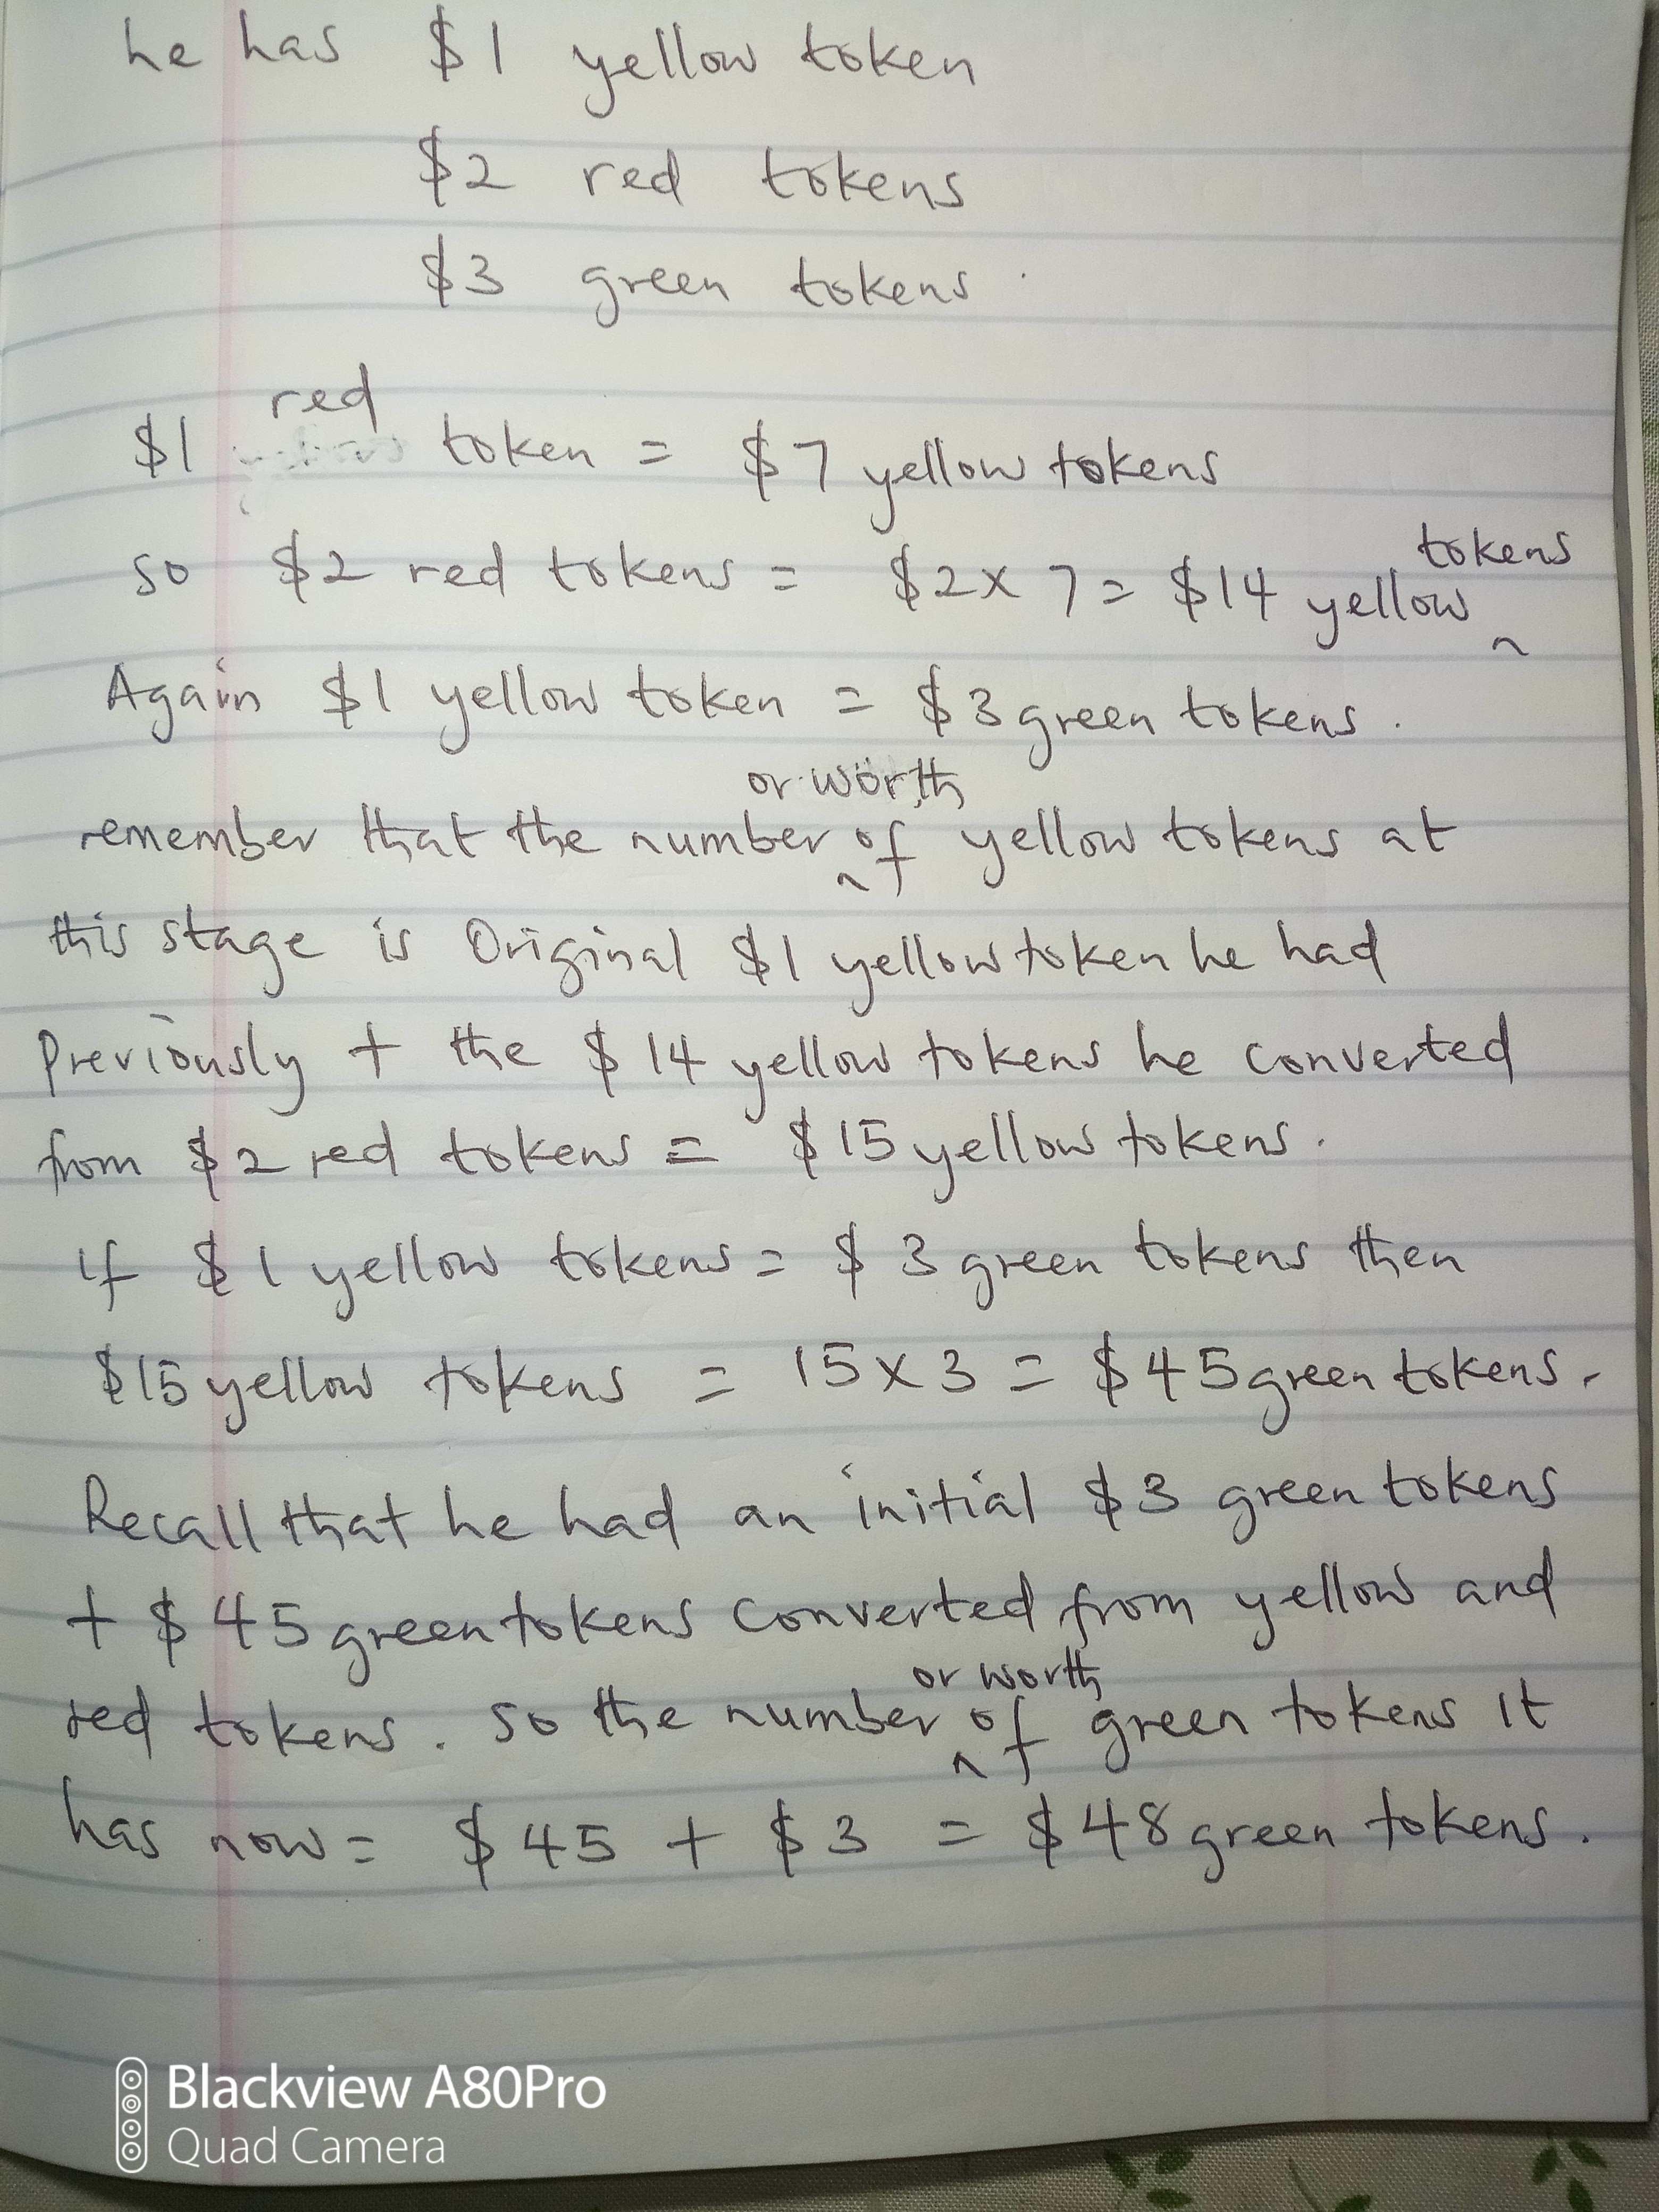 he has $1 yellow token
$2 red tokens
$3 green tokens
red
$1 token = $7 yellow tokens
tokens
so $2 red tokens = $2 x 7 = $14 yellow
Again $1 yellow token = $3 green tokens.
or worth
remember that the number of yellow tokens at
this stage is Original $1 yellow token he had
Previously + the $14 yellow tokens he converted
from $2 red tokens = $15 yellow tokens.
if $1 yellow tokens = $3 green tokens then
$15 yellow tokens = 15 x 3 = $45 green tokens.
Recall that he had an initial $3 green tokens
+ $45 green tokens converted from yellow and
or worth
red tokens. so the number of green tokens it
has now = $45 + $3 = $48 green tokens.
Blackview A80Pro
Quad Camera